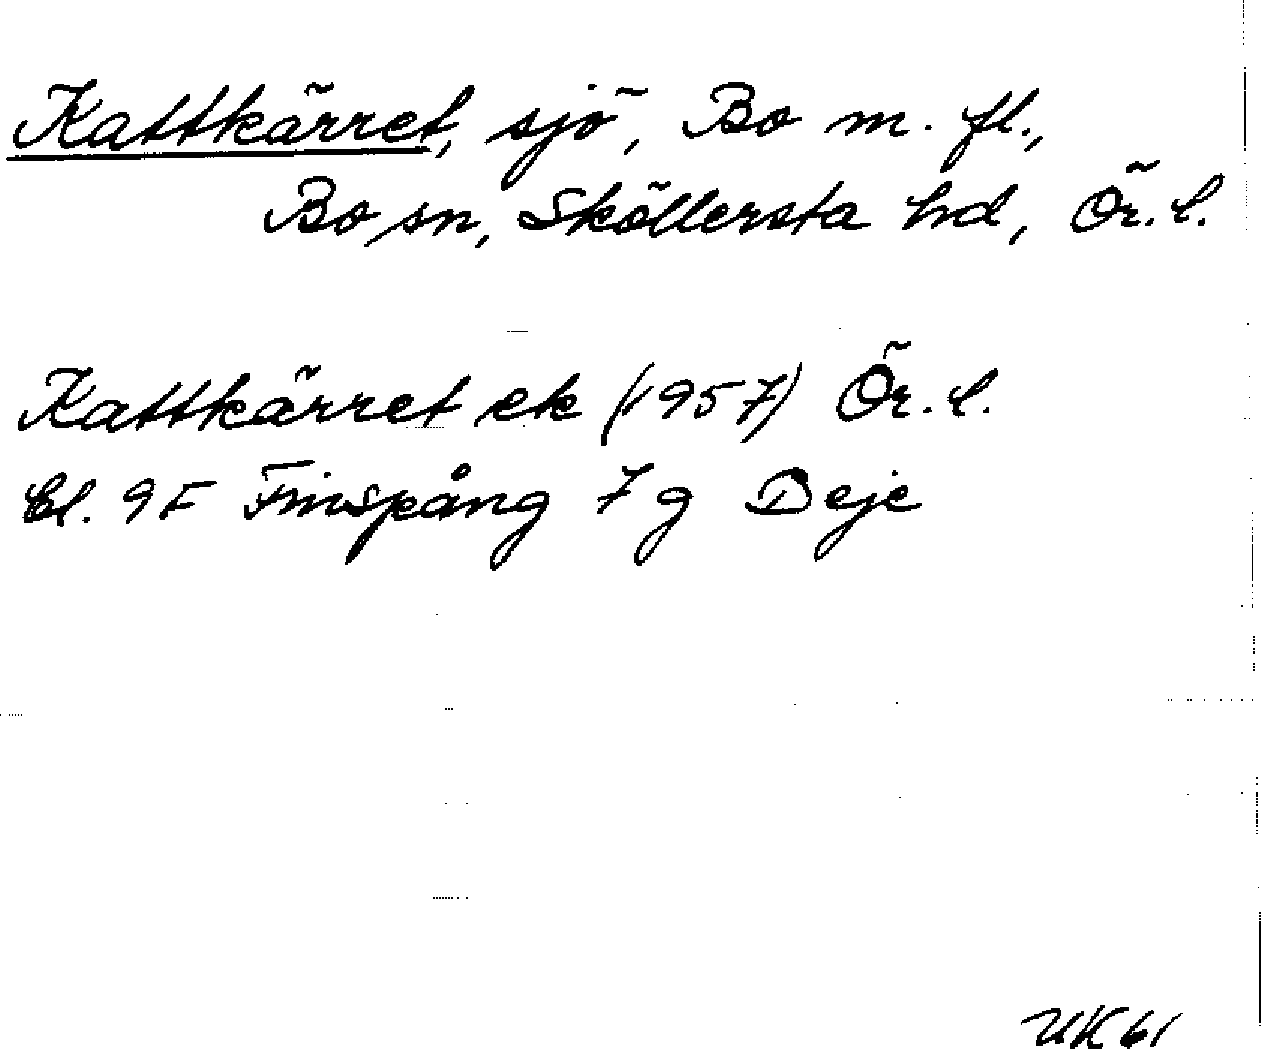 Kattkärret, sjö, Bo m. fl.,
Bo sn, Sköllersta hd, Ör. l.
Kattkärret ek (1957) Ör. l.
Bl. 9F Finspång 7g Deje
UK 61